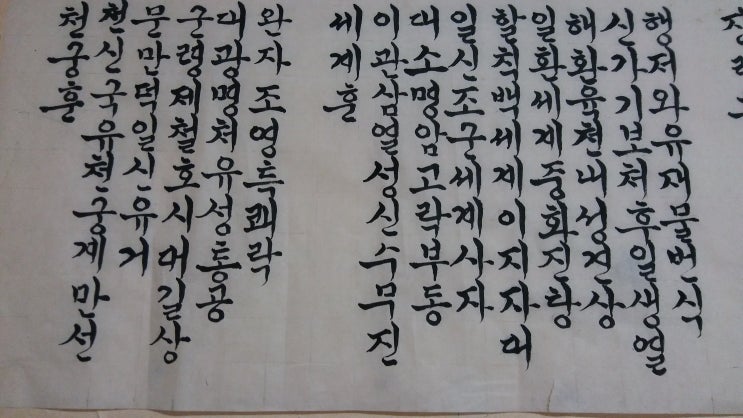 천궁훈
천신국유천궁계만선
문만덕일신유거
군령제철호시대길상
대광명처유성통공
완자조영득쾌락
세계훈
이관삼열성신수무진
대소명암고락부동
일신조군세계사자
할칙백세계이지자대
일환세계중화진탕
해환육천내성견상
신가기보처후일생열
행저와유재물번식